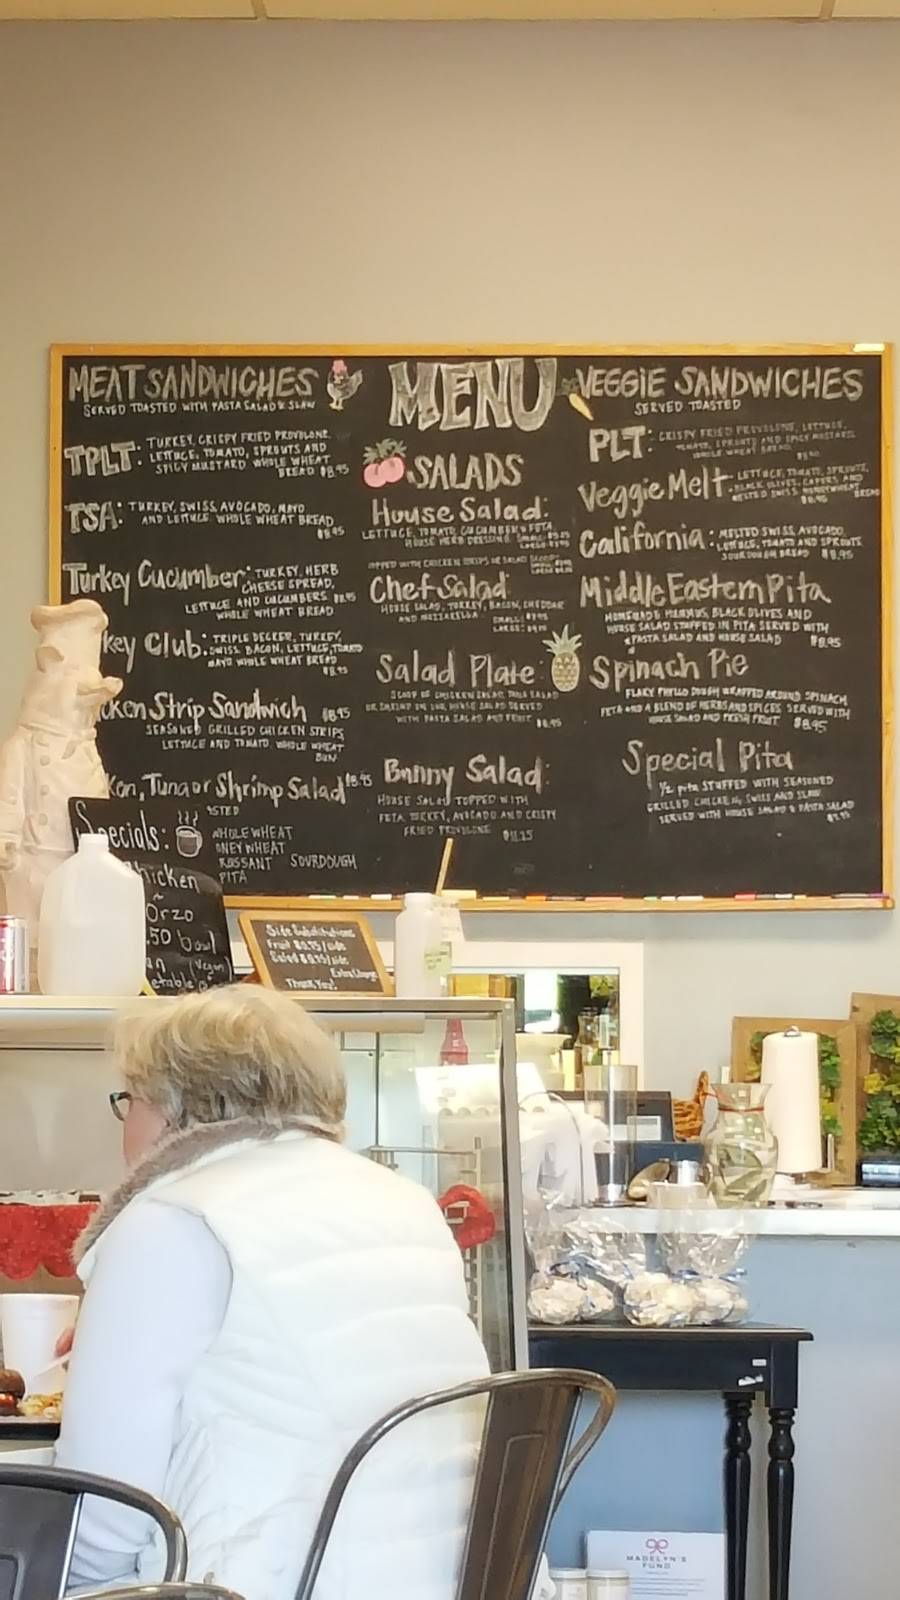 MENU
MEAT SANDWICHES
SERVED TOASTED WITH PASTA SALAD & SLAW
TPLT: TURKEY, CRISPY FRIED PROVOLONE,
LETTUCE, TOMATO, SPROUTS AND
SPICY MUSTARD WHOLE WHEAT
BREAD $8.95
TSA: TURKEY, SWISS, AVOCADO, MAYO
AND LETTUCE. WHOLE WHEAT BREAD
$8.95
Turkey Cucumber: TURKEY, HERB
CHEESE SPREAD,
LETTUCE AND CUCUMBERS $8.95
WHOLE WHEAT BREAD
key Club: TRIPLE DECKER, TURKEY,
SWISS, BACON, LETTUCE, TOMATO
MAYO WHOLE WHEAT BREAD
$8.95
cken Strip Sandwich $8.95
SEASONED GRILLED CHICKEN STRIPS,
LETTUCE AND TOMATO. WHOLE WHEAT
BUN
ken, Tuna or Shrimp Salad $8.95
STED
WHOLE WHEAT
ONEY WHEAT
ROSSANT SOURDOUGH
PITA
SALADS
House Salad:
LETTUCE, TOMATO, CUCUMBER & FETA
HOUSE HERB DRESSING
TOPPED WITH CHICKEN STRIPS OR SALAD SCOOP:
Chef Salad
HOUSE SALAD, TURKEY, BACON, CHEDDAR
AND MOZZARELLA
SMALL:
LARGE:
Salad Plate:
SCOOP OF CHICKEN SALAD, TUNA SALAD
OR SHRIMP ON OUR HOUSE SALAD SERVED
WITH PASTA SALAD AND FRUIT
Bunny Salad:
HOUSE SALAD TOPPED WITH
FETA, TURKEY, AVOCADO AND CRISPY
FRIED PROVOLONE $11.25
VEGGIE SANDWICHES
SERVED TOASTED
PLT: CRISPY FRIED PROVOLONE, LETTUCE,
TOMATO, SPROUTS AND SPICY MUSTARD.
WHOLE WHEAT BREAD.
Veggie Melt- LETTUCE, TOMATO, SPROUTS,
BLACK OLIVES, CAPERS AND
MELTED SWISS. HONEYWHEAT BREAD
$8.95
California: MELTED SWISS, AVOCADO,
LETTUCE, TOMATO AND SPROUTS
SOURDOUGH BREAD $8.95
Middle Eastern Pita
HOMEMADE HUMMUS, BLACK OLIVES AND
HOUSE SALAD STUFFED IN PITA SERVED WITH
PASTA SALAD AND HOUSE SALAD $8.95
Spinach Pie
FLAKY PHYLLO DOUGH WRAPPED AROUND SPINACH,
FETA AND A BLEND OF HERBS AND SPICES SERVED WITH
HOUSE SALAD AND FRESH FRUIT $8.95
Special Pita
1/2 pita STUFFED WITH SEASONED
GRILLED CHICKEN, SWISS AND SLAW
SERVED WITH HOUSE SALAD & PASTA SALAD
Specials:
hicken
Orzo
.50 bowl
(Vegan)
etable
Side Substitutions
Fruit $0.75/side
Salad $0.75/side
Extra Charge
Thank You!
MADELYN'S
FUND